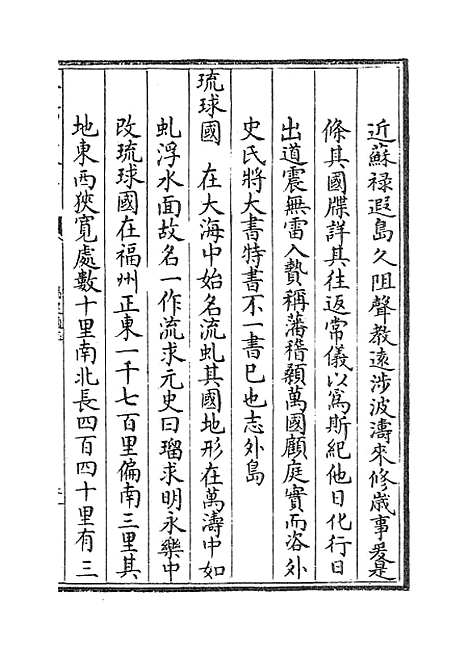 近蘇祿遐島久阻聲教遠涉波濤來修歲事爰是
條其國牒詳其往返常儀以為斯紀他日化行日
出道震無雷入贄稱藩稽顙萬國顧庭實而咨外
史氏將大書特書不一書已也志外島
琉球國　在大海中始名流虬其國地形在萬濤中如
虬浮水面故名一作流求元史曰瑠求明永樂中
改琉球國在福州正東一千七百里偏南三里其
地東西狹寬處數十里南北長四百四十里有三